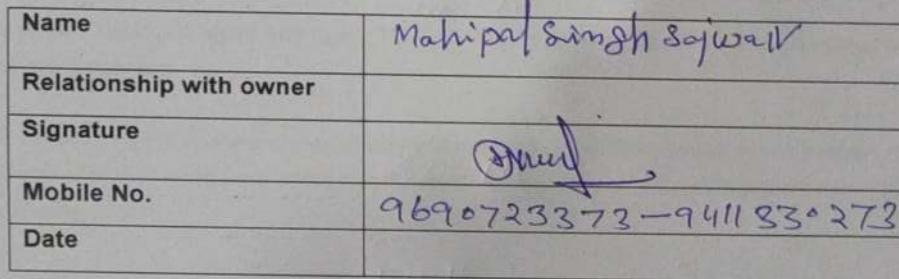 Name Mahipal Singh Sajwan
Relationship with owner
Signature
Mobile No. 9690723373-9411330273
Date